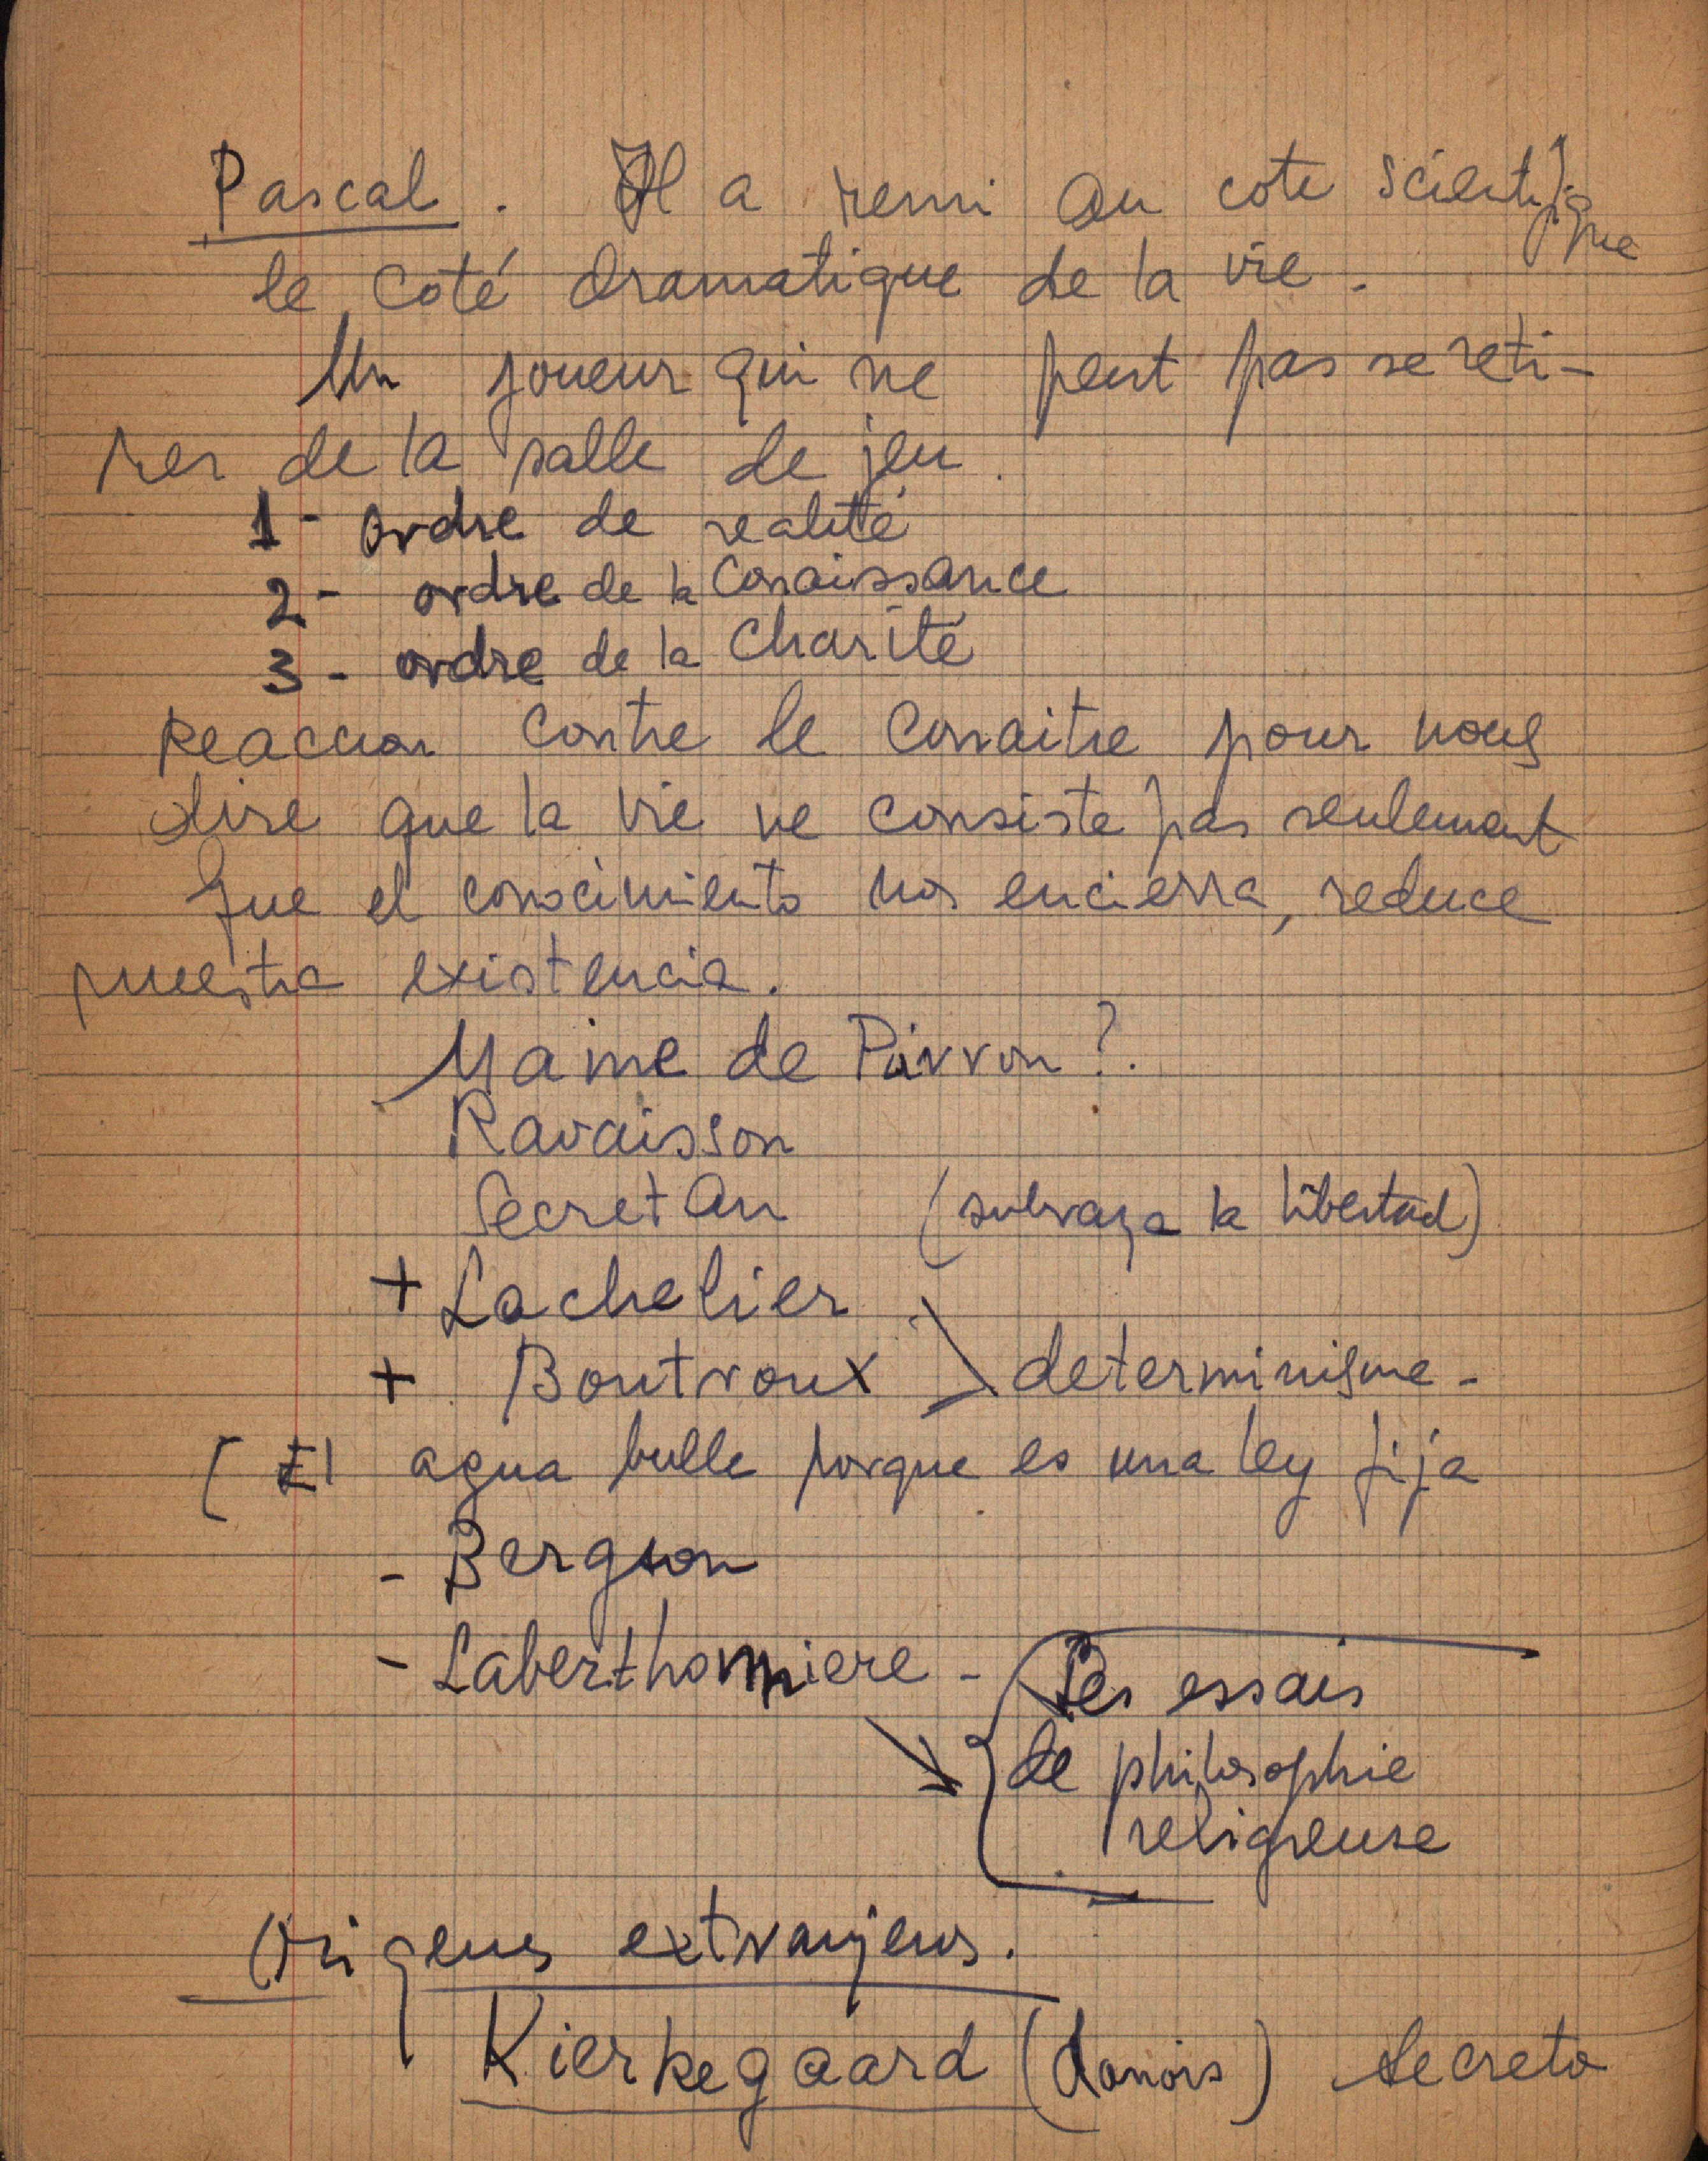 Pascal. Il a remi au cote scientifique
le coté dramatique de la vie.
Un joueur qui ne peut pas se reti-
rer de la salle de jeu.
1- ordre de realité
2- ordre de la Conaissance
3- ordre de la Charité
Reaccion contre le Conaitre pour nous
dire que la vie ne consiste pas seulement
que el conocimiento nos encierra, reduce
nuestra existencia.
Maine de Pirron?.
Ravaisson
Secretan (subraya la libertad)
+ Lachelier
+ Boutroux > determinisme -
( El agua bulle porque es una ley fija
- Bergson
- Laberthonniere - Les essais
de philosophie
religieuse
Origenes extranjeros.
Kierkegaard (danois) Secreto